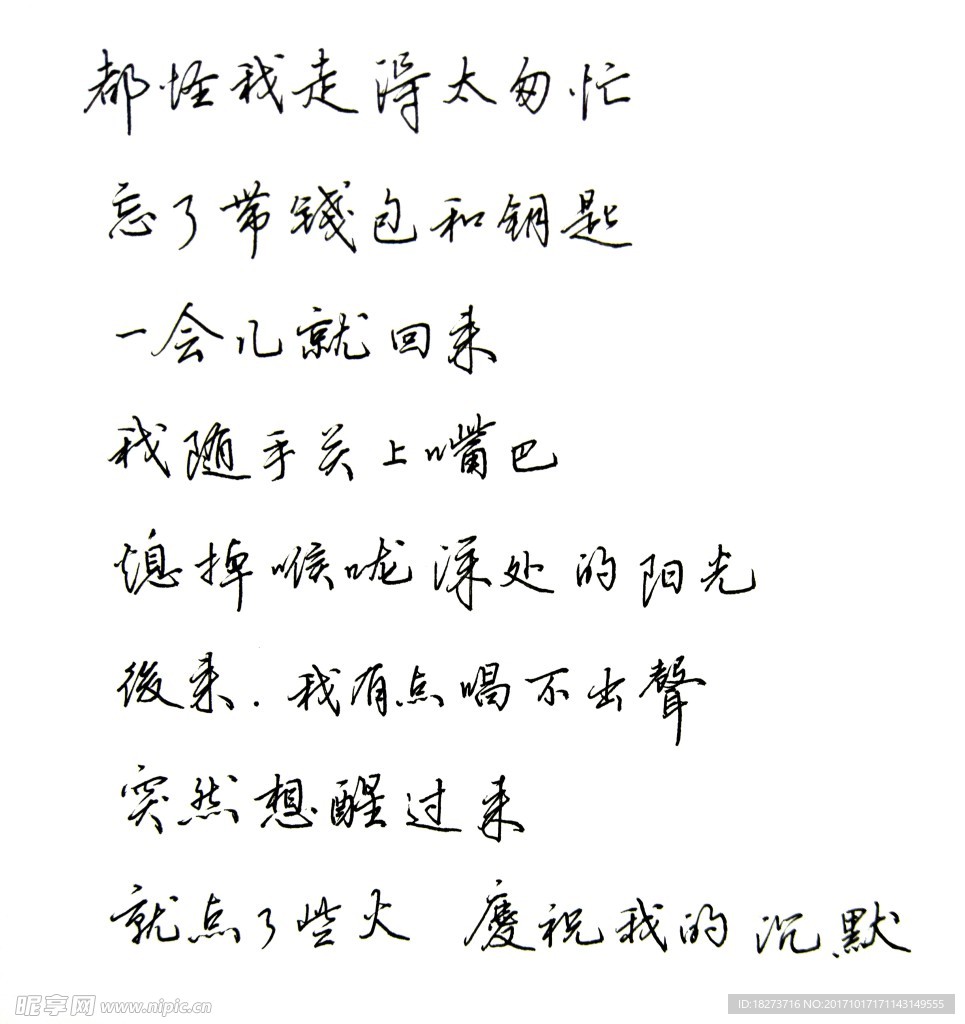 都怪我走得太匆忙
忘了带錢包和钥匙
一会儿就回来
我随手关上嘴巴
熄掉喉咙深处的阳光
後来.我有点唱不出聲
突然想醒过来
就点了些火 慶祝我的沉默
昵享网 www.nipic.cn
ID:18273716 NO:20171017171143149555